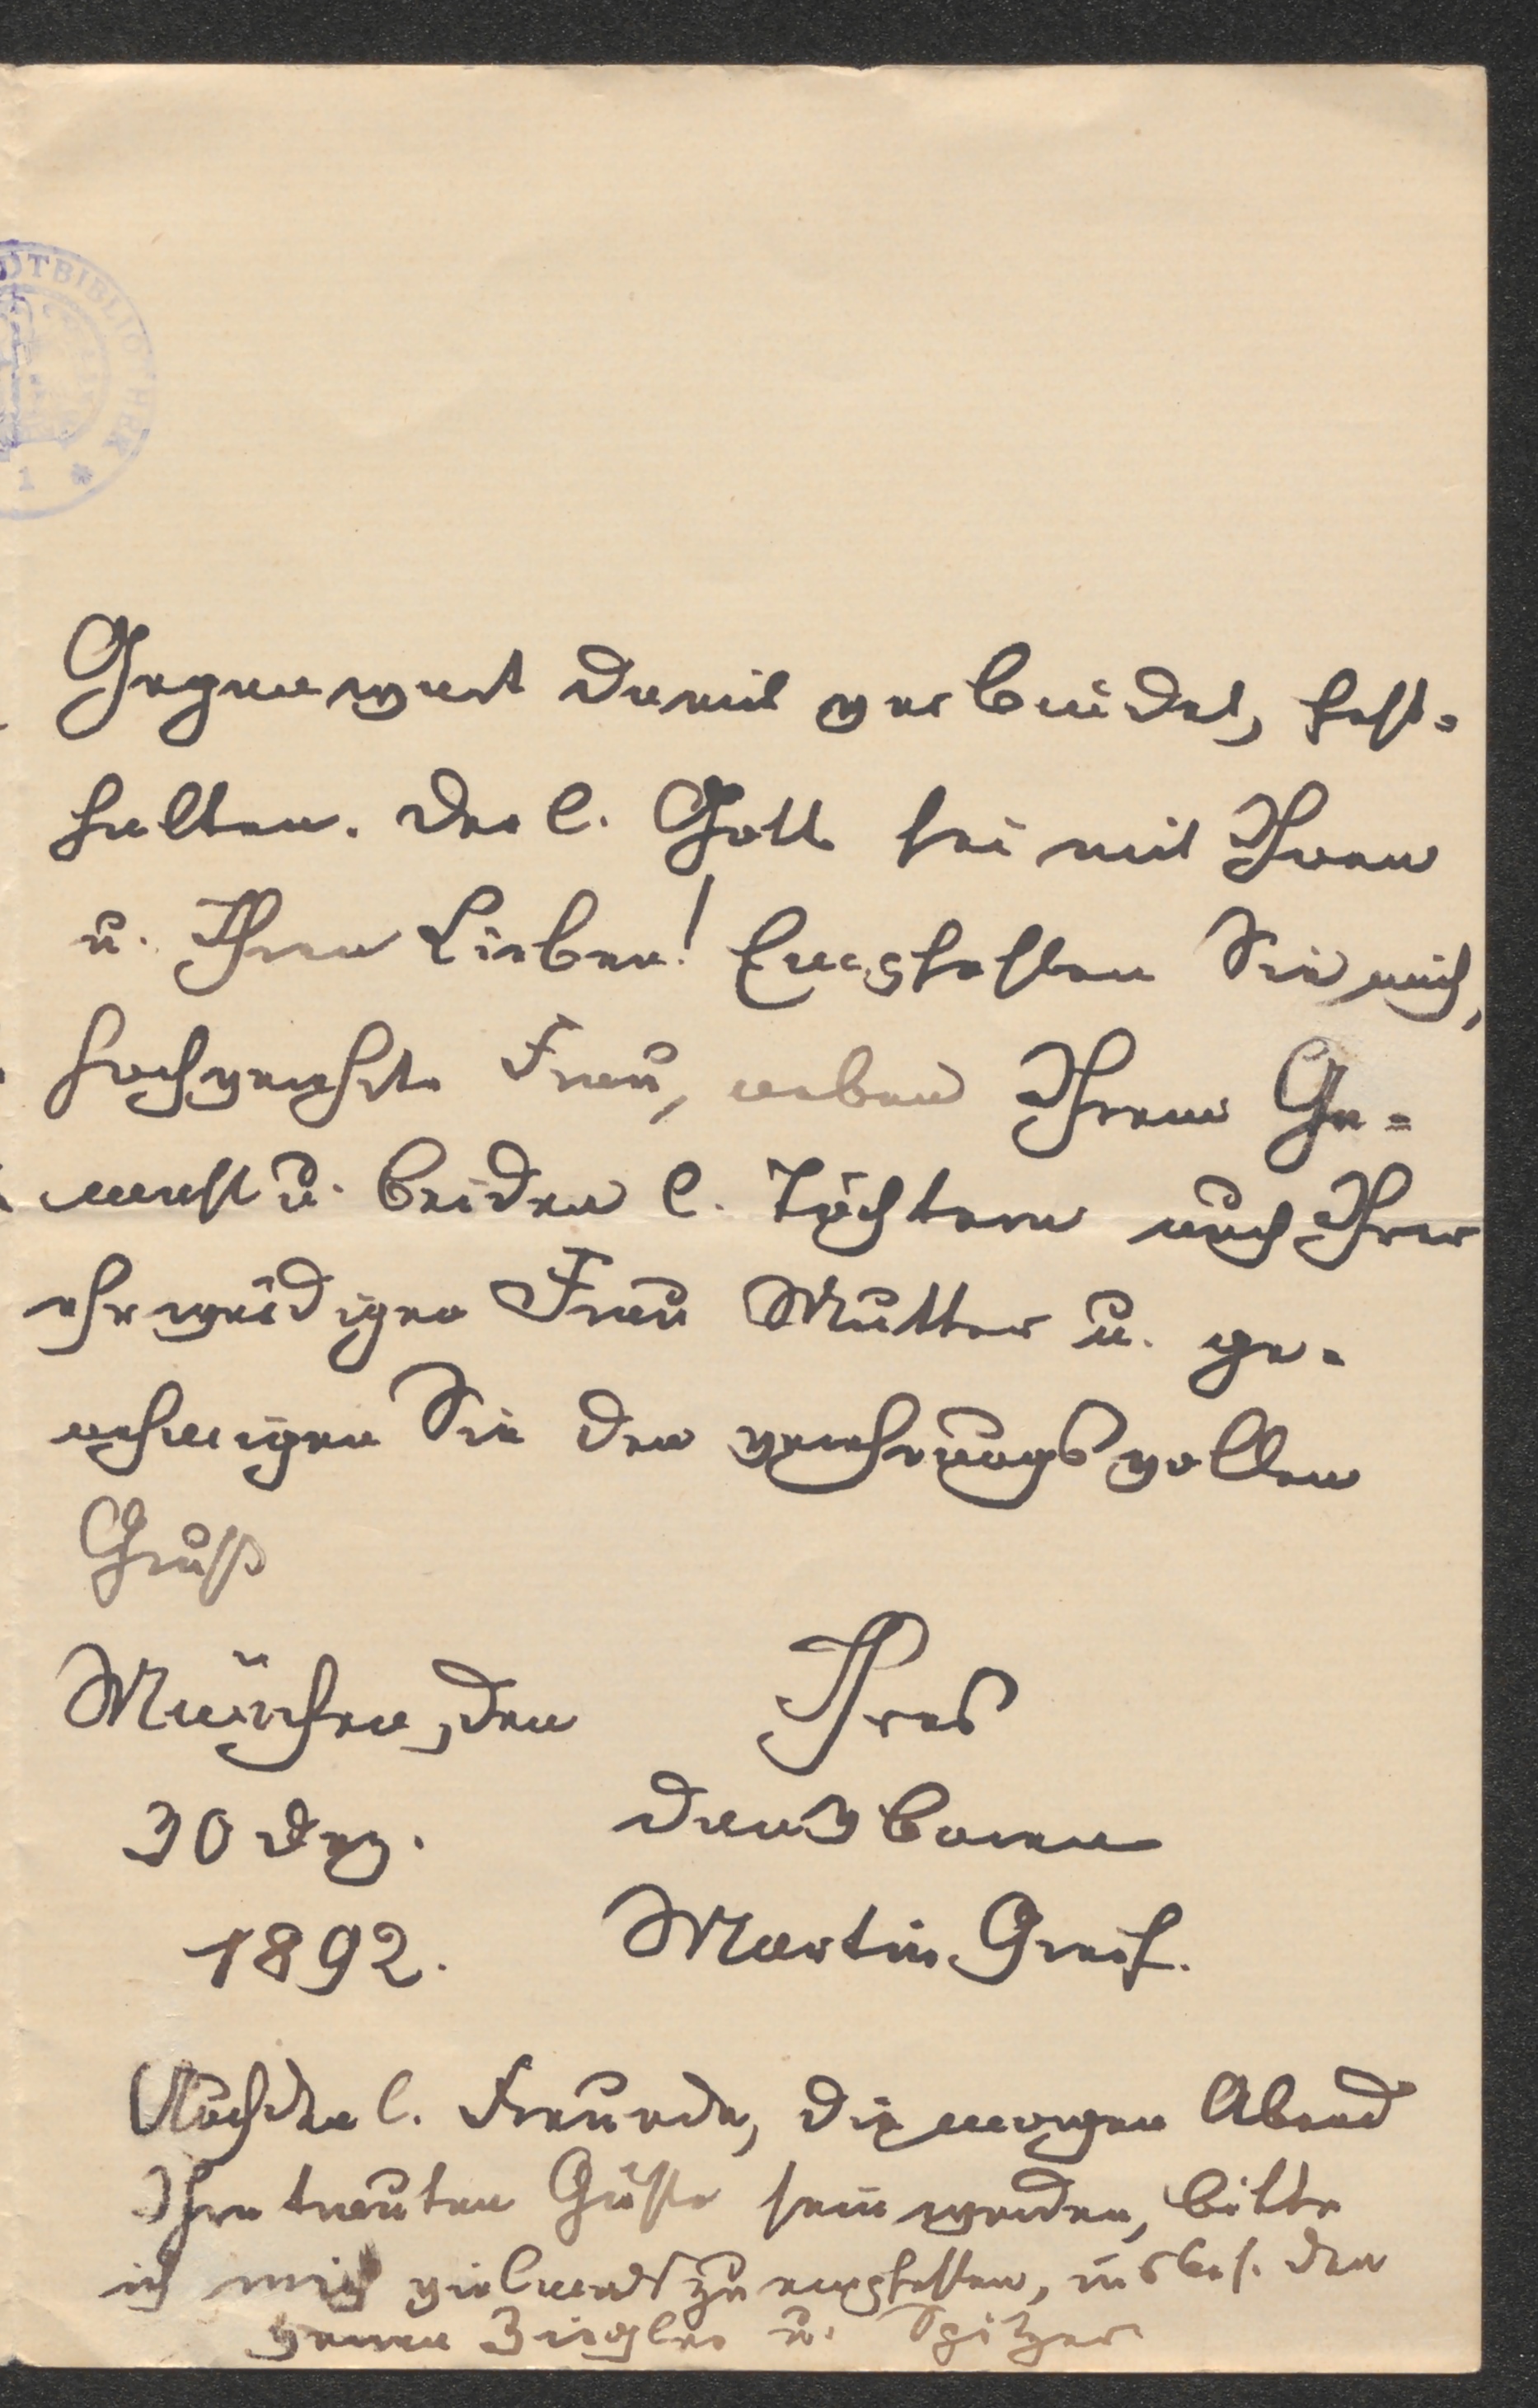 DTBIBLIOTHEK
1 *
Gegenwart damit verbindet, fest-
halten. Der l. Gott sei mit Ihnen
u. Ihren Lieben! Empfehlen Sie mich,
hochverehrte Frau, neben Ihrem Ge=
mahl u. beiden l. Töchtern auch Ihrer
ehrwürdigen Frau Mutter u. ge-
nehmigen Sie den verehrungsvollen
Gruß
München, den Ihres
30 Dez. dankbaren
1892. Martin Greif.
Auch den l. Freunden, die morgen Abend
Ihre trauten Gäste sein werden, bitte
ich mich vielmals zu empfehlen, insbes. den
Herren Ziegler u. Spitzer